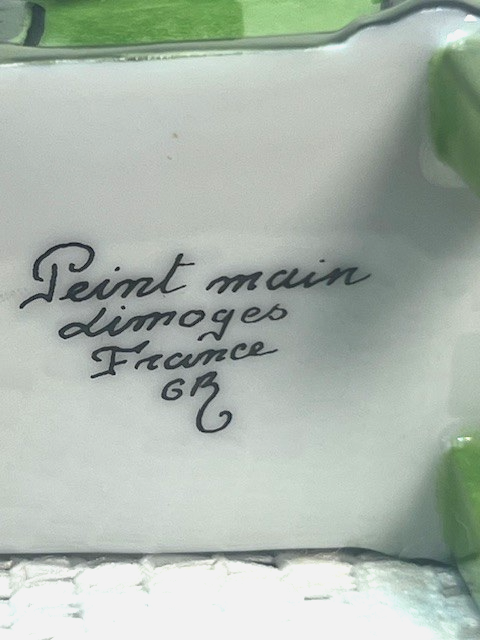 Peint main
Limoges
France
GR